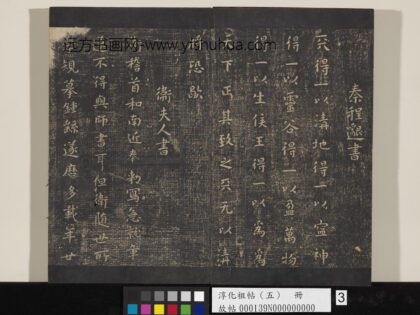 远方书画网-www.yfshuhua.com
秦程邈書
天得一以清地得一以寧神
得一以靈谷得一以盈萬物
得一以生侯王得一以為
天下正其致之天无以清
將恐歇
衛夫人書
稽首和南近奉勅寫急就章
遂不得與師書耳但衛隨世所
規摹鍾繇遂歷多載年廿
淳化祖帖（五） 冊
故帖 000139N000000000
3